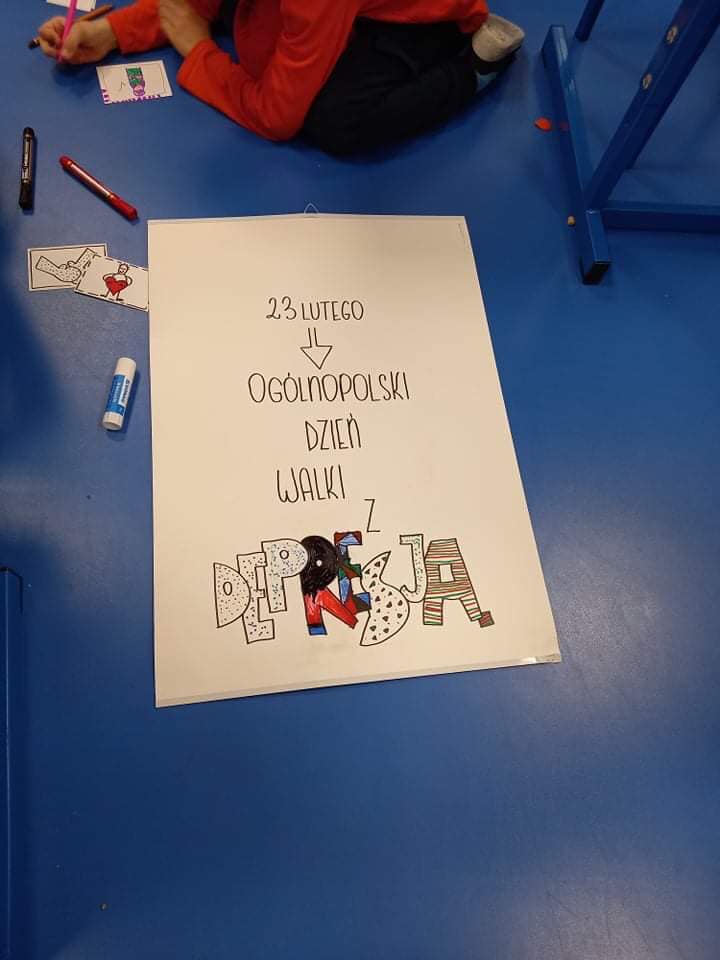 23 LUTEGO
OGÓLNOPOLSKI
DZIEŃ
WALKI
Z
DEPRESJĄ